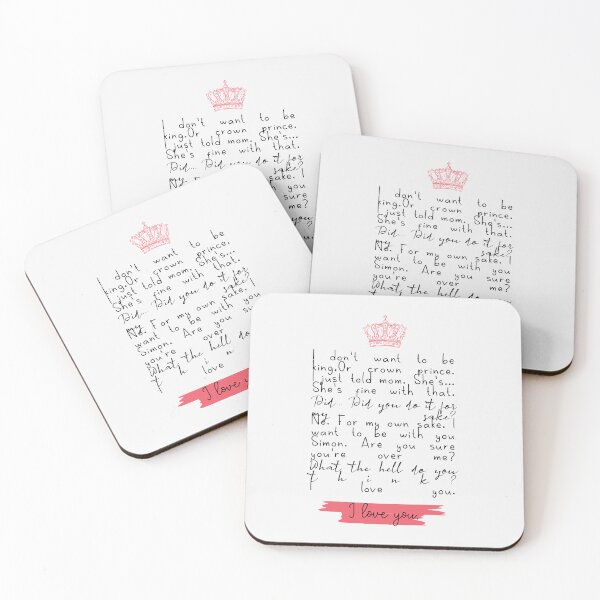 I don't want to be
king.Or crown prince.
I just told mom. She's...
She's fine with that.
Did... Did you do it for
sake?
sake. I
you
sure
me?
you
I don't want to be
king.Or crown prince.
I just told mom. She's...
She's fine with that.
Did... Did you do it for
my sake?
No. For my own sake. I
want to be with you
Simon. Are you sure
you're over me?
What, the hell do you
I don't want to be
king.Or crown prince.
I just told mom. She's...
She's fine with that.
Did... Did you do it for
my sake?
No. For my own sake. I
want to be with you
Simon. Are you
you're over
What, the hell do
t h i n
I love
I love
I don't want to be
king.Or crown prince.
I just told mom. She's...
She's fine with that.
Did... Did you do it for
my sake?
No. For my own sake. I
want to be with you
Simon. Are you sure
you're over me?
What, the hell do you
t h i n k ?
I love you.
I love you.